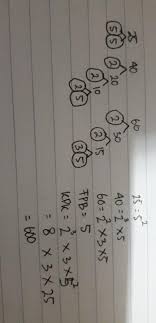 25 40 60
5 5 2 20 2 30
2 10 2 15
2 5 3 5
25 = 5²
40 = 2³ × 5
60 = 2² × 3 × 5
FPB = 5
KPK = 2³ × 3 × 5²
= 8 × 3 × 25
= 600